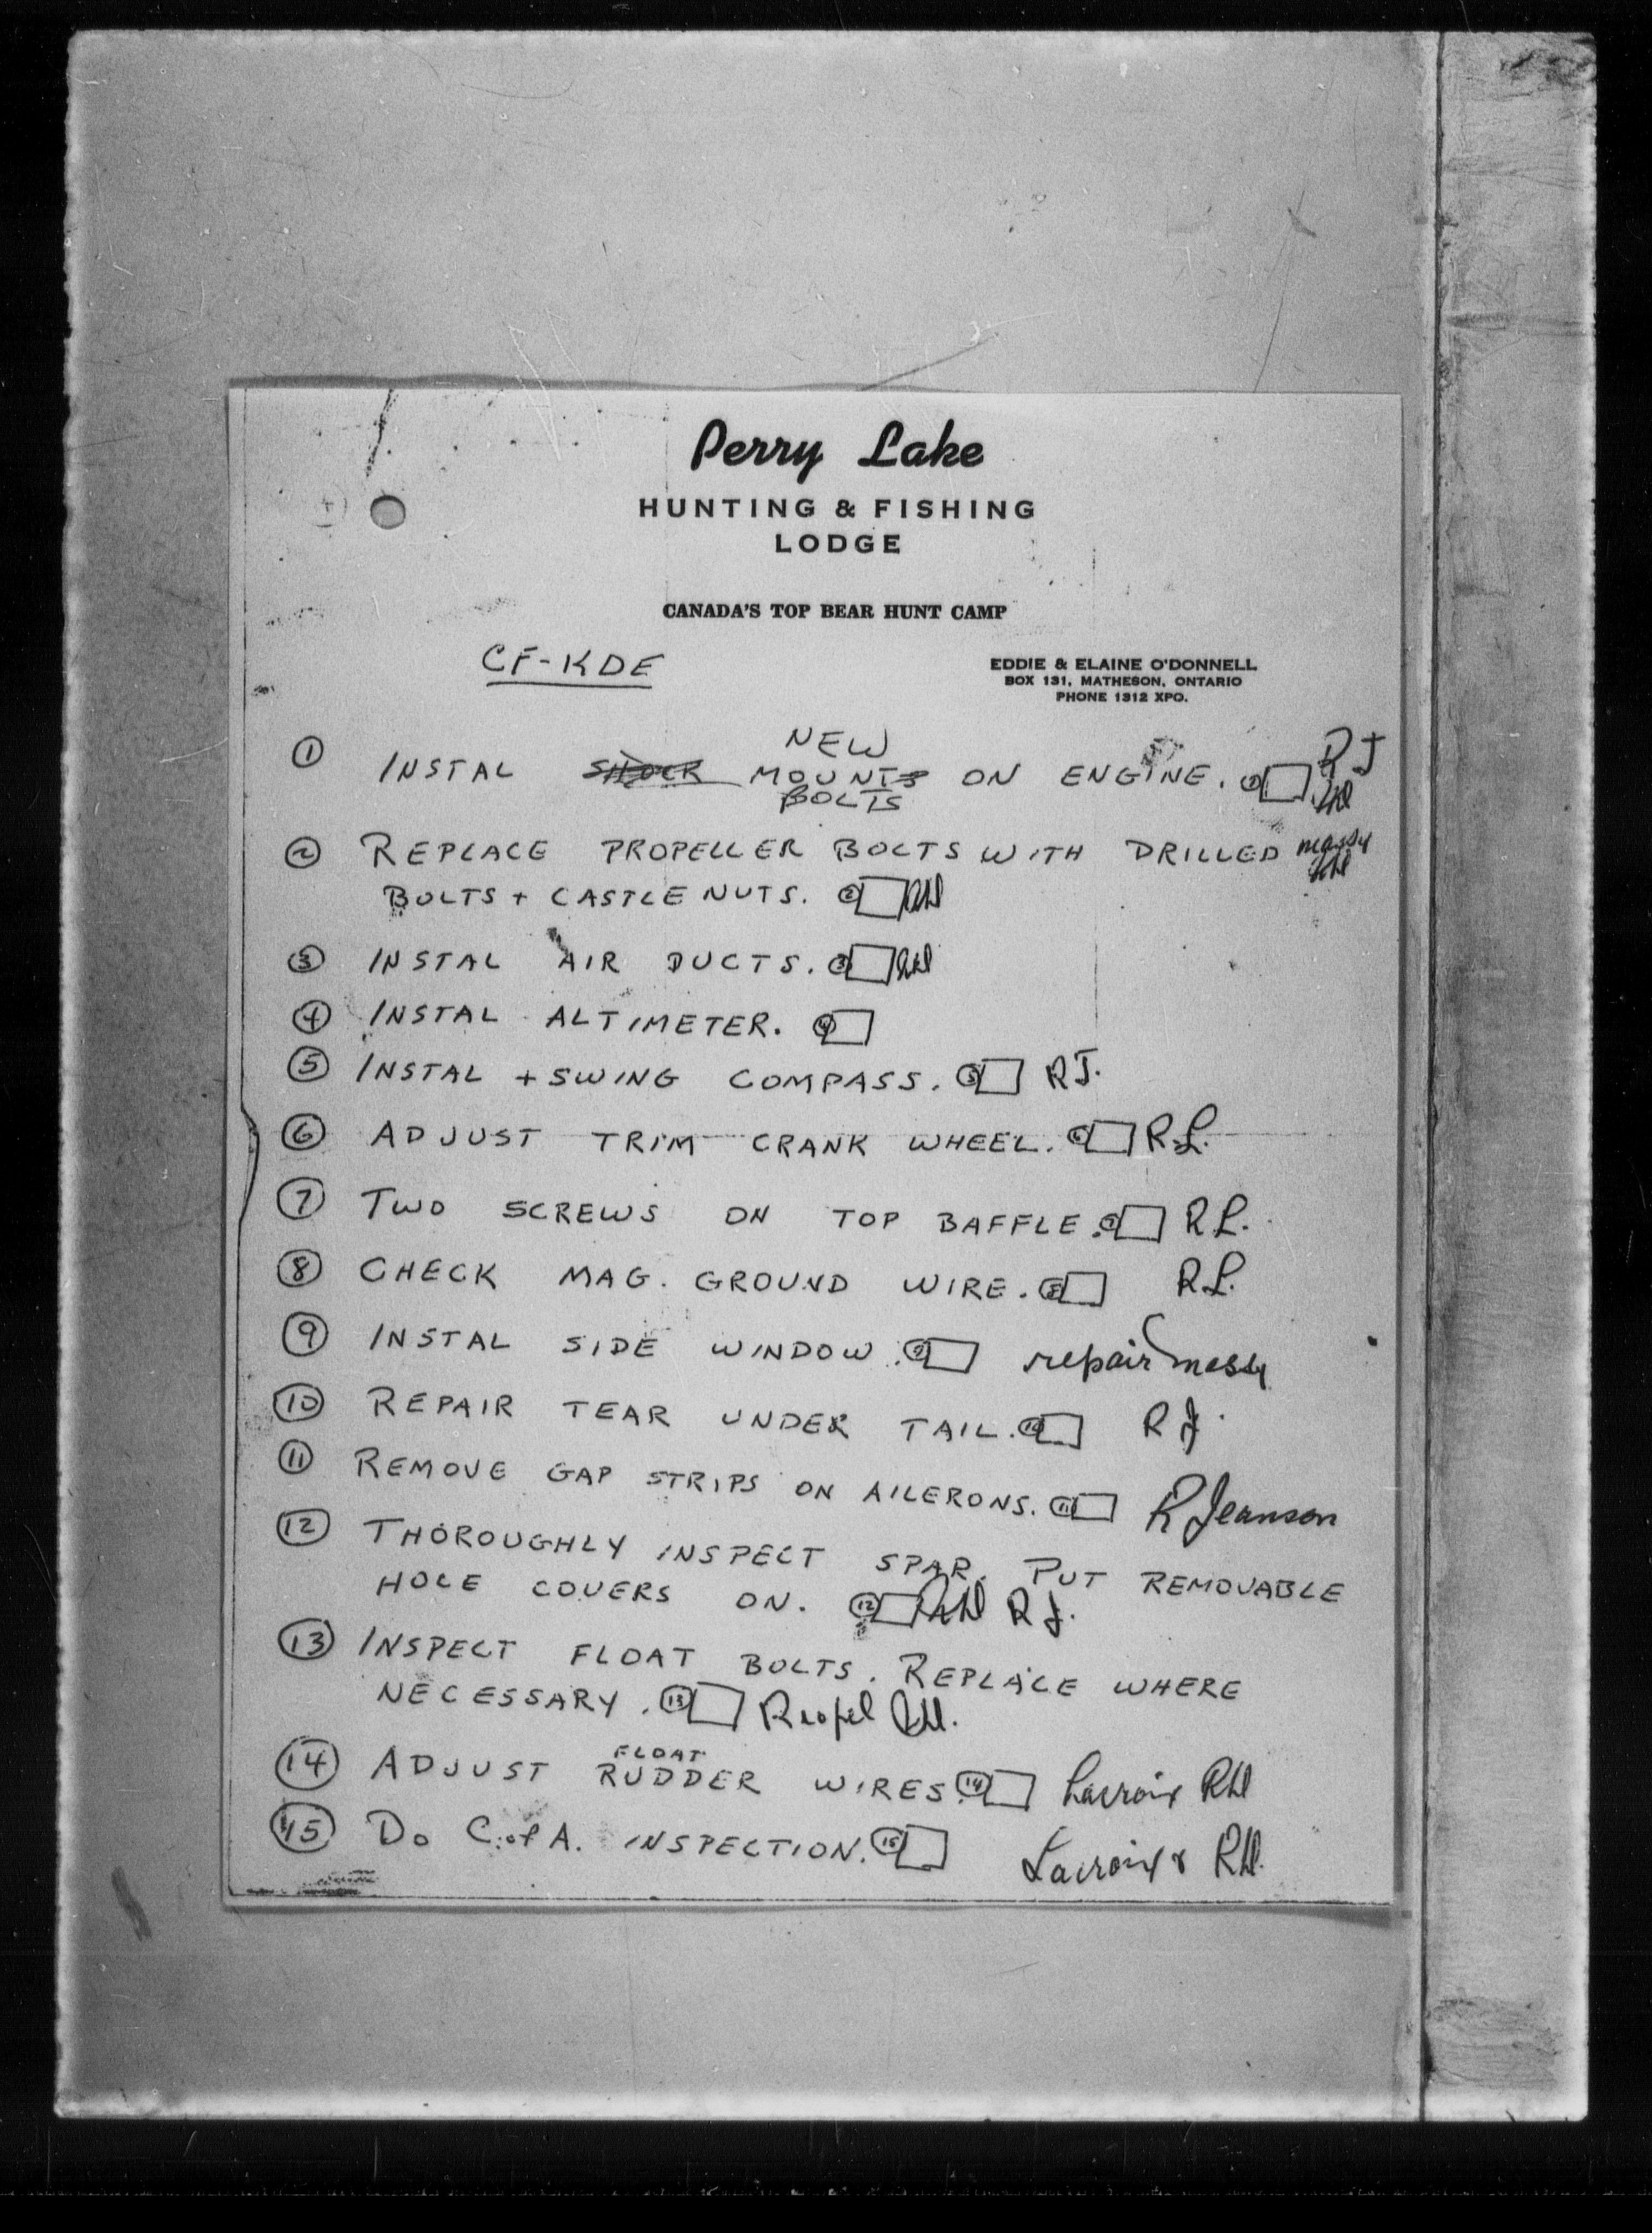 Perry Lake
HUNTING & FISHING
LODGE
CANADA'S TOP BEAR HUNT CAMP
CF-KDE
EDDIE & ELAINE O'DONNELL
BOX 131, MATHESON, ONTARIO
PHONE 1312 XPO.
NEW
① INSTAL SHOCK MOUNTS ON ENGINE. ① RJ
BOLTS
② REPLACE PROPELLER BOLTS WITH DRILLED
BOLTS + CASTLE NUTS. ②
③ INSTAL AIR DUCTS. ③
④ INSTAL ALTIMETER. ④
⑤ INSTAL + SWING COMPASS. ⑤ RJ.
⑥ ADJUST TRIM CRANK WHEEL. ⑥ R.L.
⑦ TWO SCREWS ON TOP BAFFLE. ⑦ RL.
⑧ CHECK MAG. GROUND WIRE. ⑧ R.L.
⑨ INSTAL SIDE WINDOW. ⑨ repair
⑩ REPAIR TEAR UNDER TAIL. ⑩ RJ.
⑪ REMOVE GAP STRIPS ON AILERONS. ⑪ R Jeanson
⑫ THOROUGHLY INSPECT SPAR. PUT REMOVABLE
HOLE COVERS ON. ⑫ RJ.
⑬ INSPECT FLOAT BOLTS. REPLACE WHERE
NECESSARY. ⑬
FLOAT
⑭ ADJUST RUDDER WIRES. ⑭ Lacroix
⑮ DO C. of A. INSPECTION. ⑮ Lacroix &